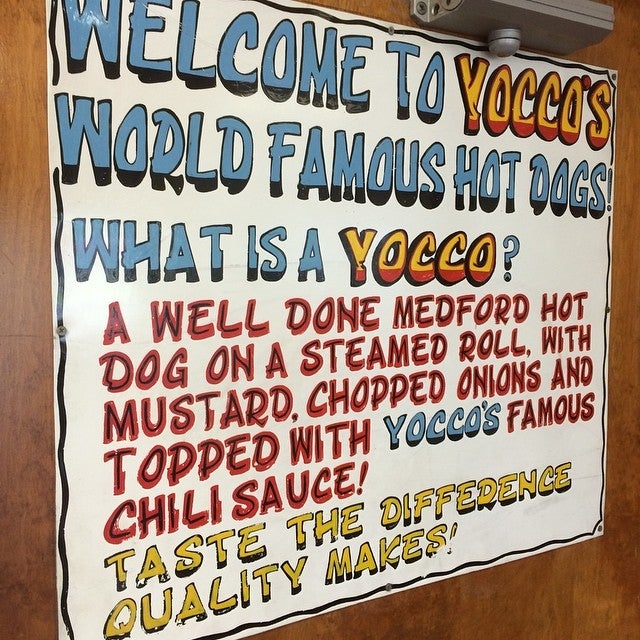 WELCOME TO YOCCO'S
WORLD FAMOUS HOT DOGS!
WHAT IS A YOCCO?
A WELL DONE MEDFORD HOT
DOG ON A STEAMED ROLL, WITH
MUSTARD, CHOPPED ONIONS AND
TOPPED WITH YOCCO'S FAMOUS
CHILI SAUCE!
TASTE THE DIFFERENCE
QUALITY MAKES!